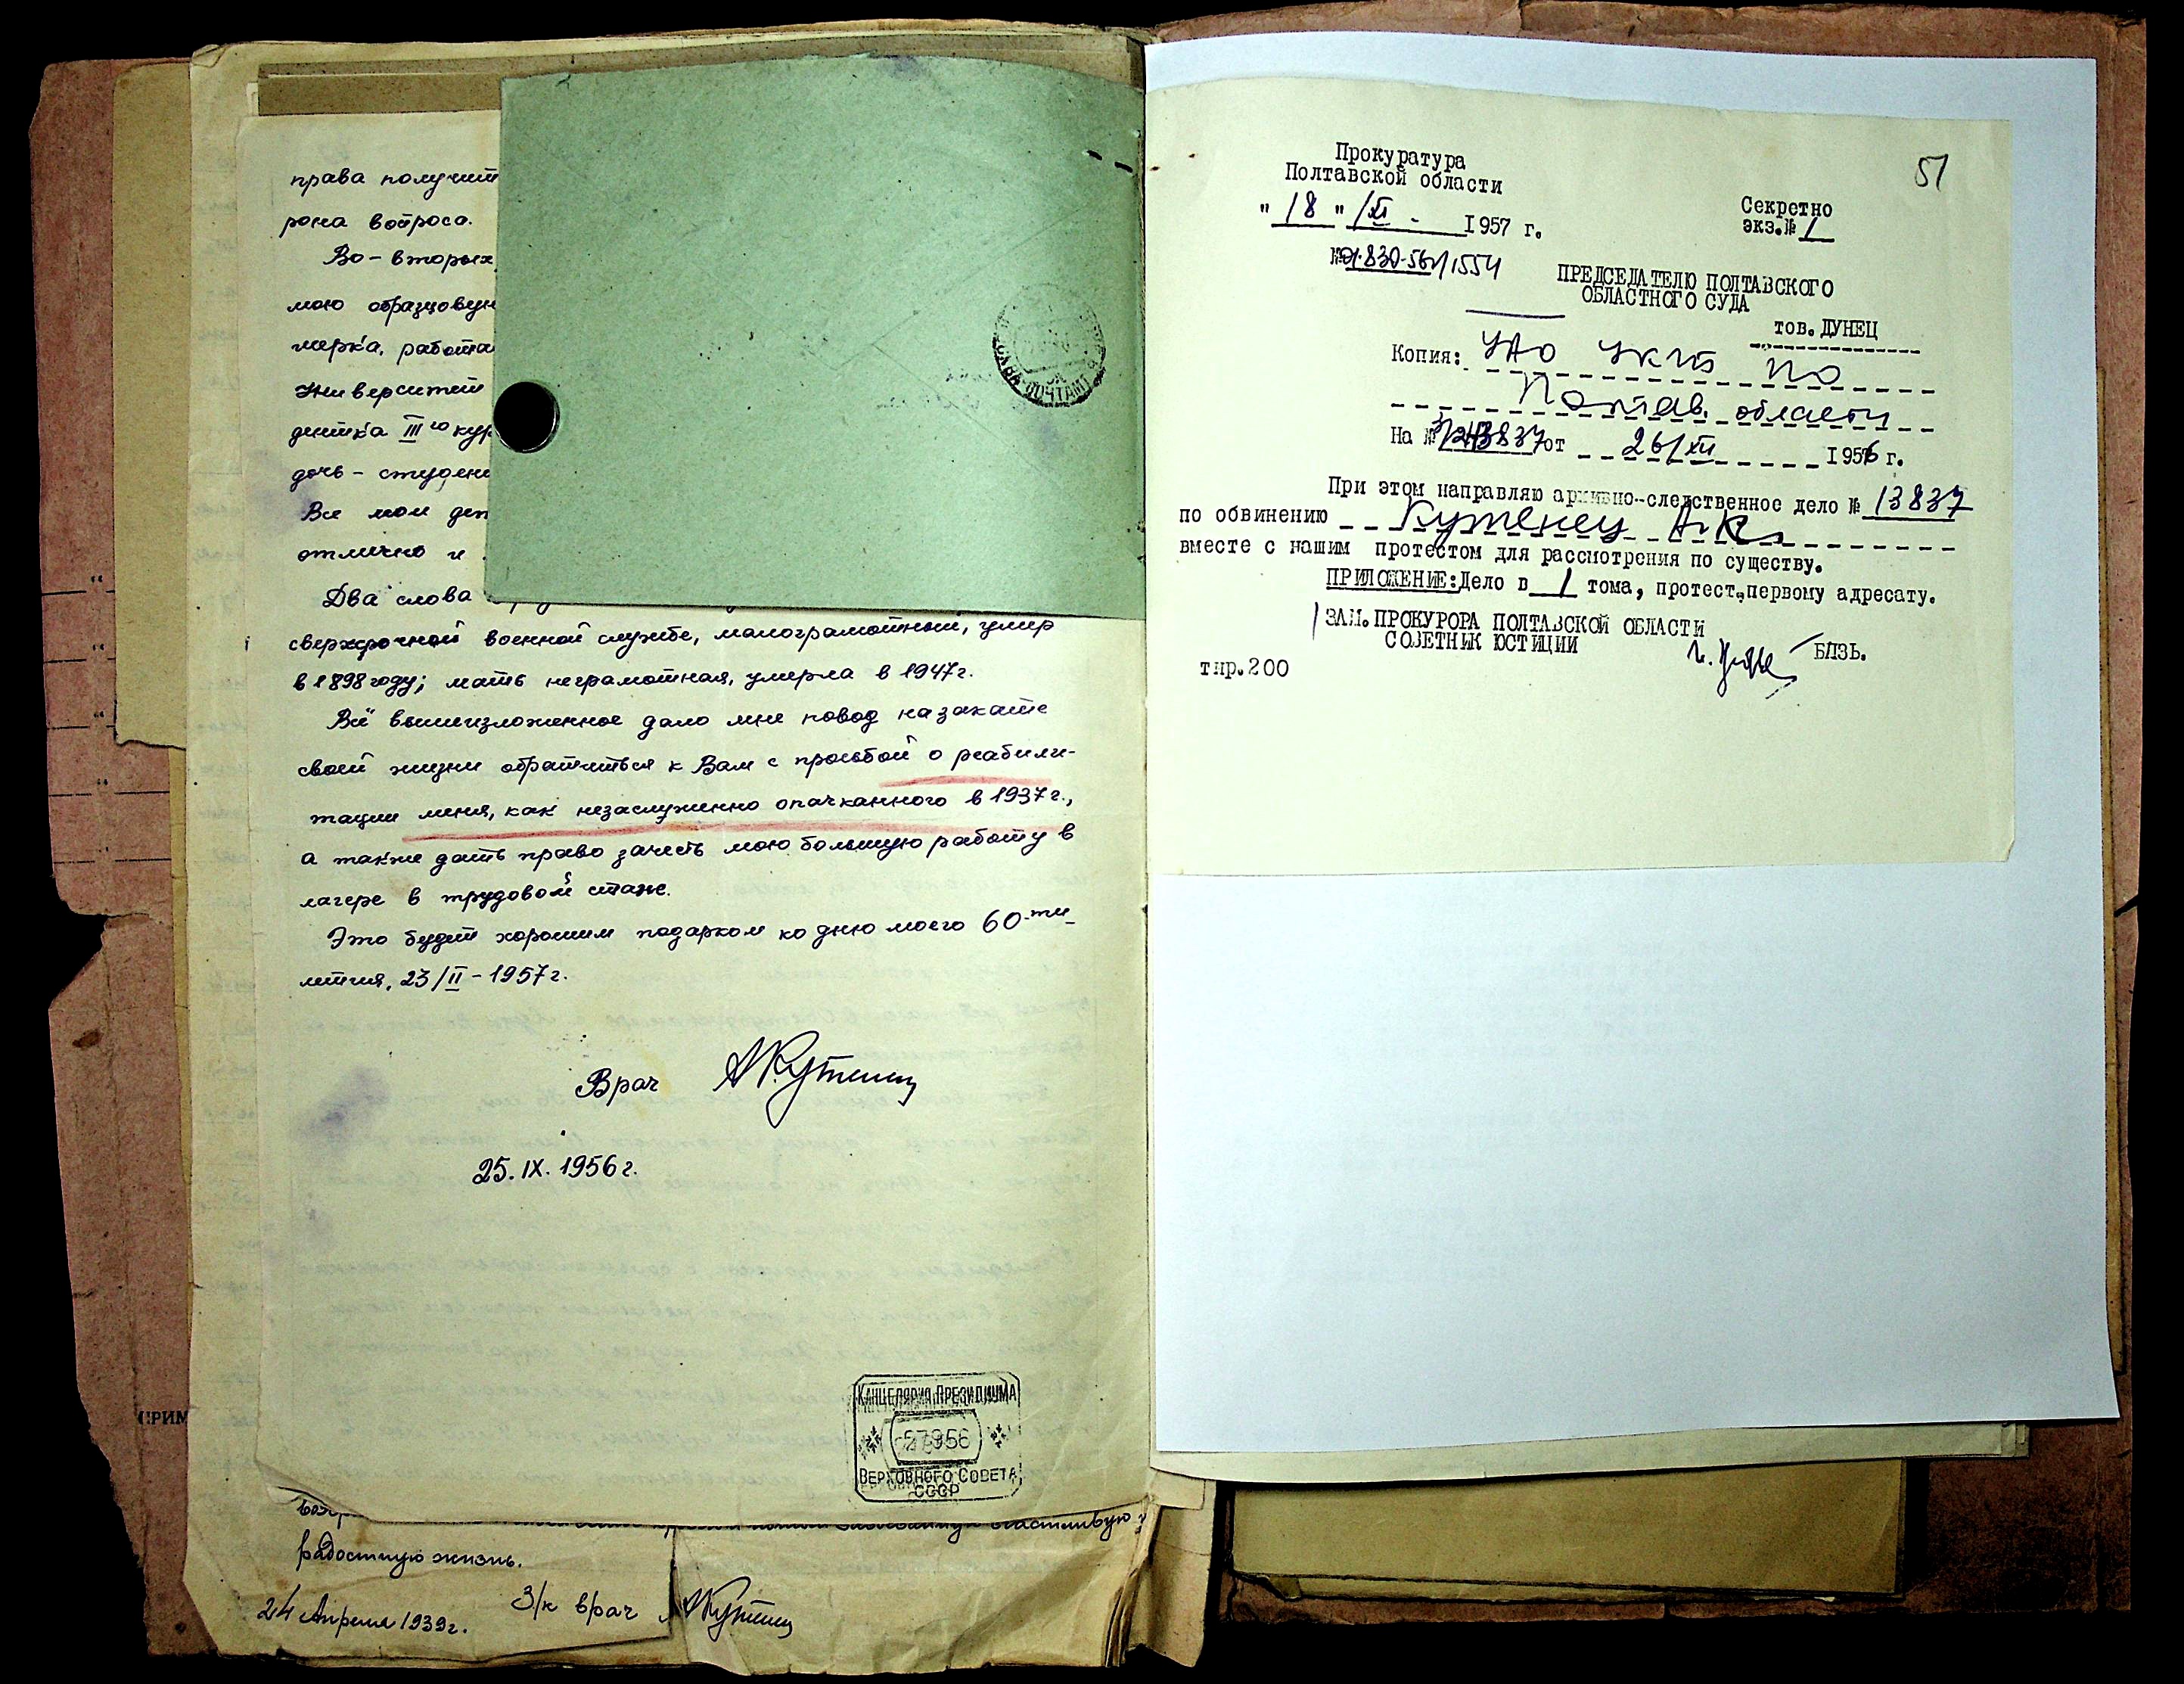 права получит
рона вопроса.
Во-вторых,
мою образцовую
мерка, работа
Университет
дентка III го кур
дочь - студен
Все мои дет
отлично и
Два слова
сверхсрочной военной службе, малограмотный, умер
в 1898 году; мать неграмотная, умерла в 1947 г.
Всё вышеизложенное дало мне повод на закате
своей жизни обратиться к Вам с просьбой о реабили-
тации меня, как незаслуженно опачканного в 1937 г.,
а также дать право зачесть мою большую работу в
лагере в трудовой стаж.
Это будет хорошим подарком ко дню моего 60-ти-
летия, 23/II - 1957 г.
Врач АКутенец
25. IX. 1956 г.
КАНЦЕЛЯРИЯ ПРЕЗИДИУМА
ВЕРХОВНОГО СОВЕТА
СССР
счастливую и
радостную жизнь.
24 Апреля 1939 г. З/к врач АКутенец
ПРИМ
ПОЧТАМТ
51
Прокуратура
Полтавской области
"18" /XI - 1957 г.
Секретно
экз.№ 1
ПРЕДСЕДАТЕЛЮ ПОЛТАВСКОГО
ОБЛАСТНОГО СУДА
тов. ДУНЕЦ
Копия: УАО УКГБ по
Полтав. области
На № от 26/XII 1956 г.
При этом направляю архивно-следственное дело № 13837
по обвинению Кутенец А.К.
вместе с нашим протестом для рассмотрения по существу.
ПРИЛОЖЕНИЕ: Дело в 1 тома, протест, первому адресату.
ЗАМ. ПРОКУРОРА ПОЛТАВСКОЙ ОБЛАСТИ
СОВЕТНИК ЮСТИЦИИ
БЛЗЬ.
тир.200